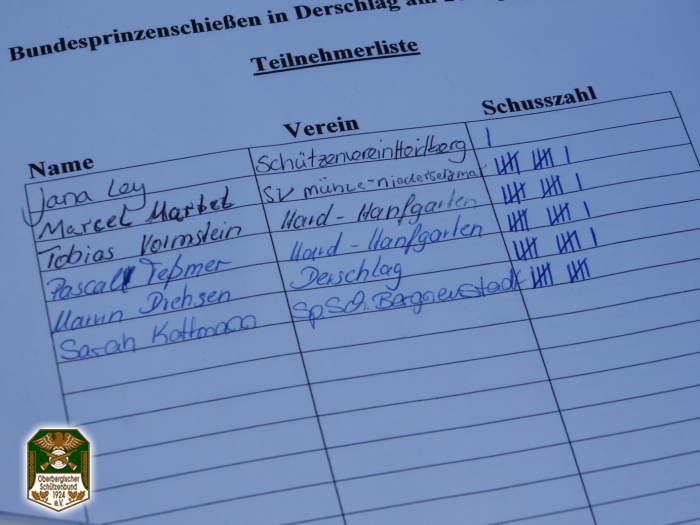 Bundesprinzenschießen in Derschlag am
Teilnehmerliste
Name Verein Schusszahl
Jana Ley Schützenverein Heilberg I
Marcel Markel SV Mühle-niedersetzmar 卌 卌 I
Tobias Vormstein Hard-Hanfgarten 卌 卌 I
Pascal Teßmer Hard-Hanfgarten 卌 卌 I
Martin Diehsen Derschlag 卌 卌 I
Sarah Kottmann SpSch. Bergneustadt 卌 卌
Oberbergischer
Schützenbund
1924
e.V.